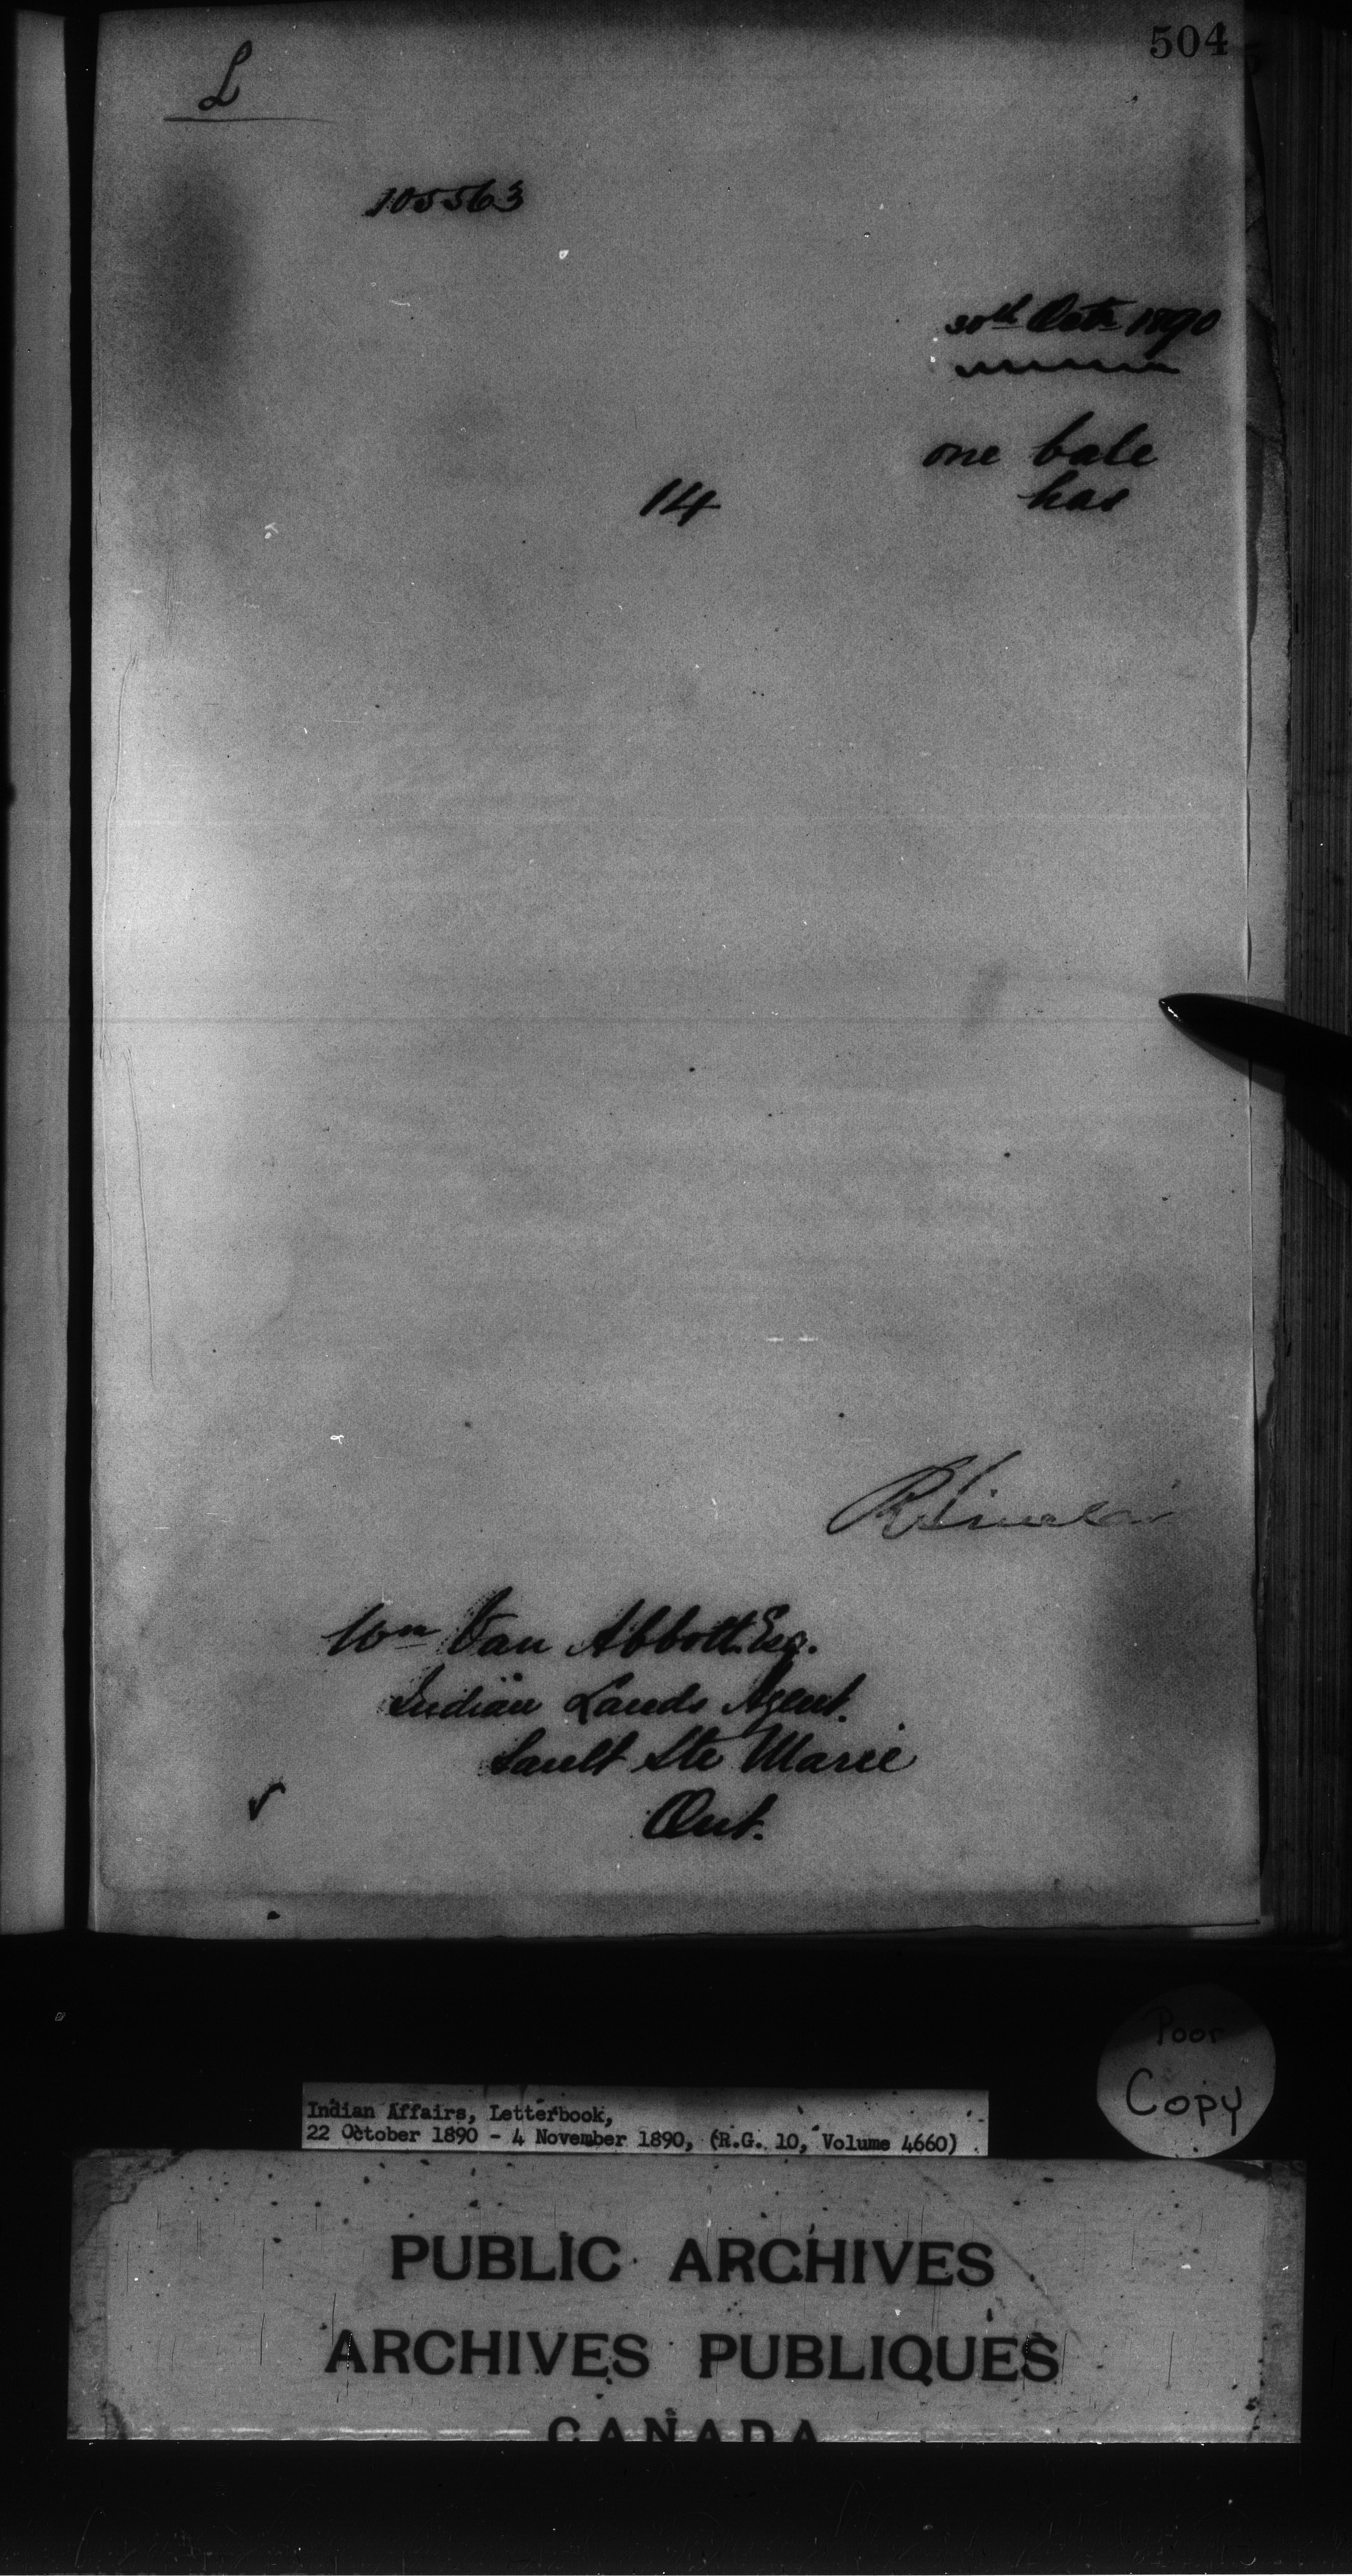 504
L
105563
30th Oct. 1890
one bale
14 has
R Sinclair
Wm Van Abbott. Esq.
Indian Lands Agent.
Sault Ste Marie
Ont.
Poor
Copy
Indian Affairs, Letterbook,
22 October 1890 - 4 November 1890, (R.G. 10, Volume 4660)
PUBLIC ARCHIVES
ARCHIVES PUBLIQUES
CANADA